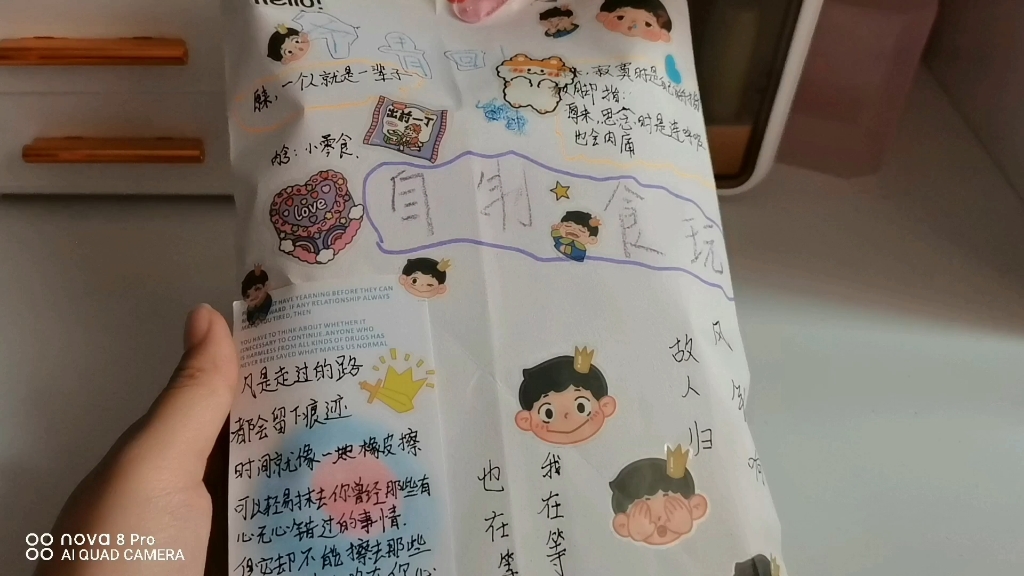 hello!
盲回
一仅就是一辈子
寂寞时是
脚指:
原来,思念,时是连呼吸
也会肉痛
出前一丁
内含:小零食、
love
自制食玩
HAVE YEARNING BEFORE THEY CAN
IF ANY RELATIONSHIP ALWAYS
TIRED, THEN
YOU HAVE TO THINK ABOUT WHETHER IT
NECESSARY TO CONTINUE. ANYONE WHO
HARMLESS FROM ALL KINDS OF DRUGS HAS
NEVER BEEN LOVED WHAT MAKES US NORMAL
凡是走过的路
都会留下痕迹
时间就像一块橡皮擦
可以轻易抹去你曾经那些有
心无心错过的事情.
但它却不能擦去那些
风
故人归
我在等
也在等
nova 8 Pro
AI QUAD CAMERA